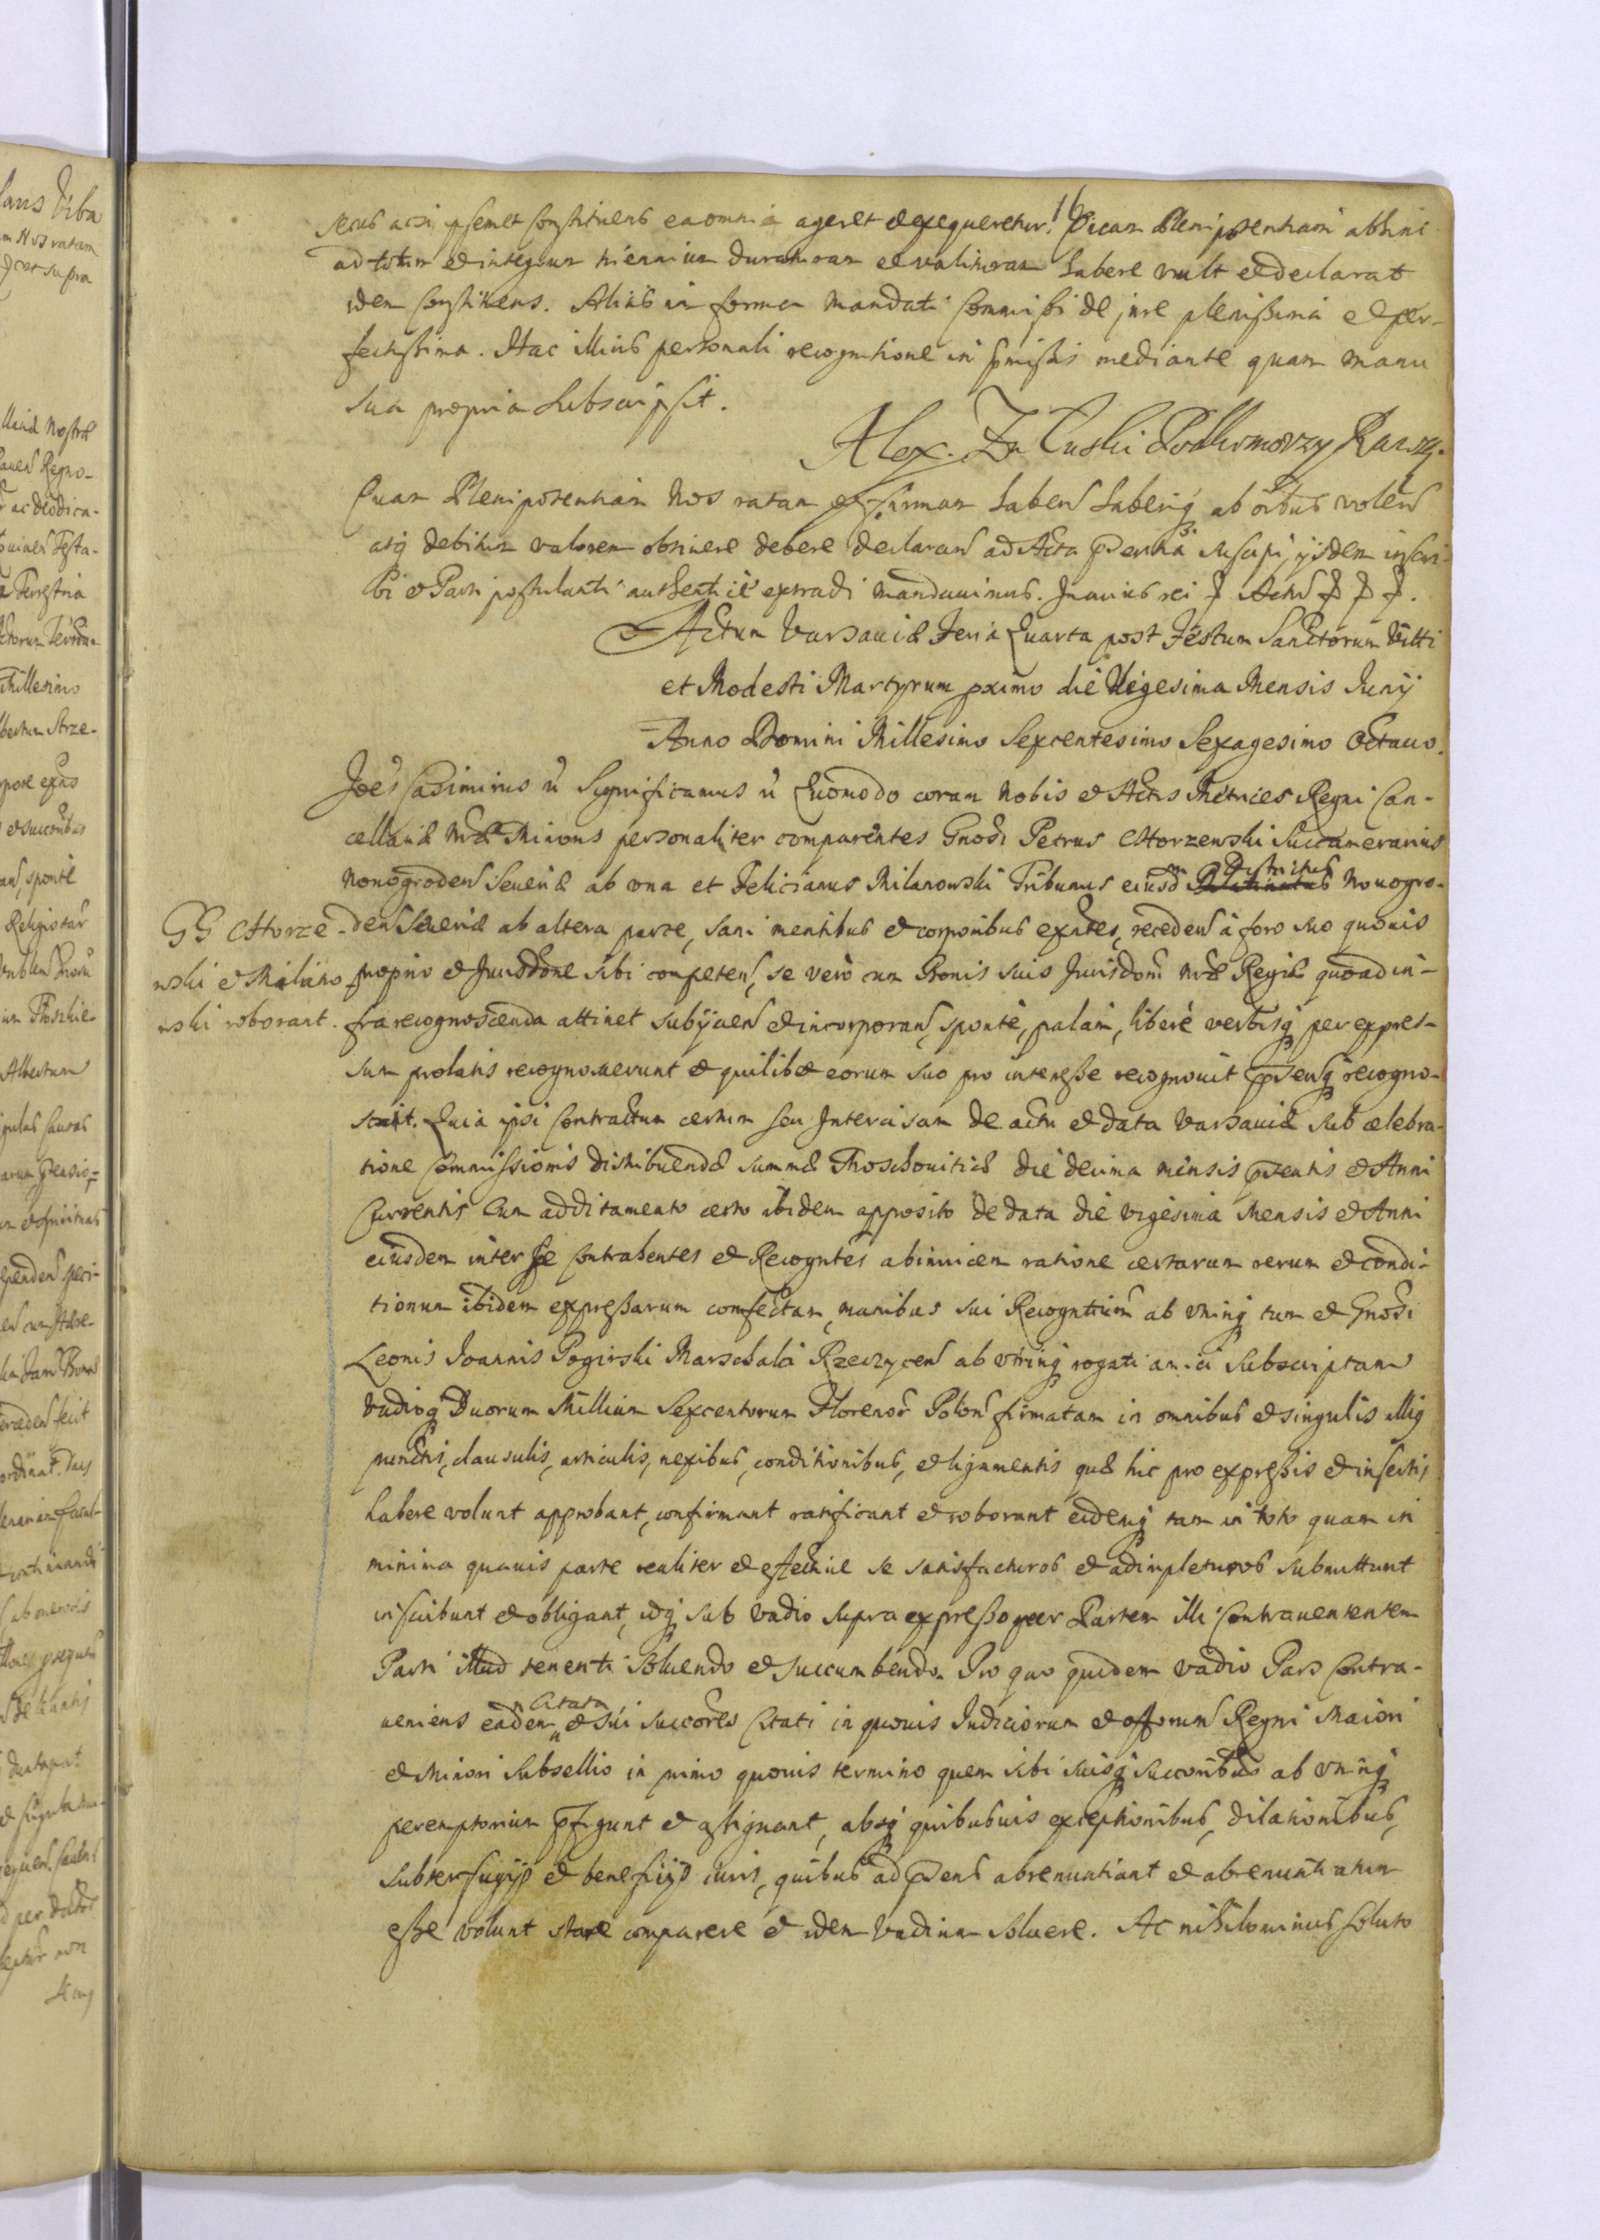 16
secus acsi ipsemet Constituens ea omnia ageret et exequeretur. Quam Plenipotentiam abhinc
ad totum et integrum triennium duraturam et valituram habere vult et declarat
idem Constituens. Alias in forma Mandati Commissi de jure plenissima et per-
fectissima. Hac illius personali recognitione in pmissis mediante quam manu
sua propria subscripsit.
Alex. Podkomorzy Rawsky.
Quam Plenipotentiam Nos ratam et firmam haben haberiq ab oibus volen
atq debitum valorem obtinere debere declaran ad Acta pntia suscipi, ijsdem inscri-
bi et Parti postulanti authentice extradi mandavimus. In cuius rei Actu
Actum Varsaviæ Feria Quarta post Festum Sanctorum Vitti
et Modesti Martyrum pximo die Vigesima Mensis Junij
Anno Domini Millesimo Sexcentesimo Sexagesimo Octavo.
Joes Casimirus Significamus Quomodo coram Nobis et Actis Metrices Regni Can-
cellariæ Nræ Minoris personaliter comparentes Gnosi Petrus Chorzewski Succamerarius
Novogroden Severiæ ab una et Felicianus Milanowski Tribunus eiusd Palatinatus Districtus Novogro-
GG Chorze- den Severiæ ab altera parte, sani mentibus et corporibus exntes, receden à foro suo quovis
wski et Milano proprio et Jurisdone sibi competen, se vero cum Bonis suis Jurisdoni nræ Regiæ quoad in-
wski roborant. fra recognoscenda attinet subijcien et incorporan, sponte, palam, libere verbisq per expres-
sum prolatis recognoverunt et quilibet eorum suo pro interesse recognovit pntisq recogno-
scunt. Quia ipsi Contractum certum seu Intercisam de actu et data Varsaviæ sub celebra-
tione Commissionis distribuendæ summæ Moschoviticæ die decima mensis pntis et Anni
Currentis Cum additamento certo ibidem apposito de data die vigesima Mensis et Anni
eiusdem inter se Contrahentes et Recogntes abinvicem ratione certarum rerum et condi-
tionum ibidem expressarum confectam, manibus sui Recogntium ab utrinq tum et Gnosi
Leonis Joannis Pogirski Marschalci Rzeczycen ab utrinq rogati amici subscriptam
Vadioq Duorum Millium Sexcentorum Florenor Polon firmatam in omnibus et singulis illiq
punctis, clausulis, articulis, nexibus, conditionibus, et ligamentis quæ hic pro expressis et insertis
habere volunt approbant, confirmant ratificant et roborant eidemq tam in toto quam in
minima quavis parte realiter et effective se satisfacturos et adimpleturos submittunt
inscribunt et obligant, idq sub vadio supra expresso per Partem illi Contravenientem
Parti illud tenenti solvendo et succumbendo. Pro quo quidem vadio Pars Contra-
veniens eadem Citata et sui succores Citati in quovis Judiciorum et officiorum Regni Maiori
et Minori Subsellio in primo quovis termino quem sibi suisq succoribus ab utrinq
peremptorium pfigunt et assignant, absq quibusvis exceptionibus, dilationibus,
subterfugijs et beneficijs iuris, quibus ad pntis abrenuntiant et abrenuntiatum
esse volunt stare comparere et idem Vadium solvere. Ac nihilominus soluto